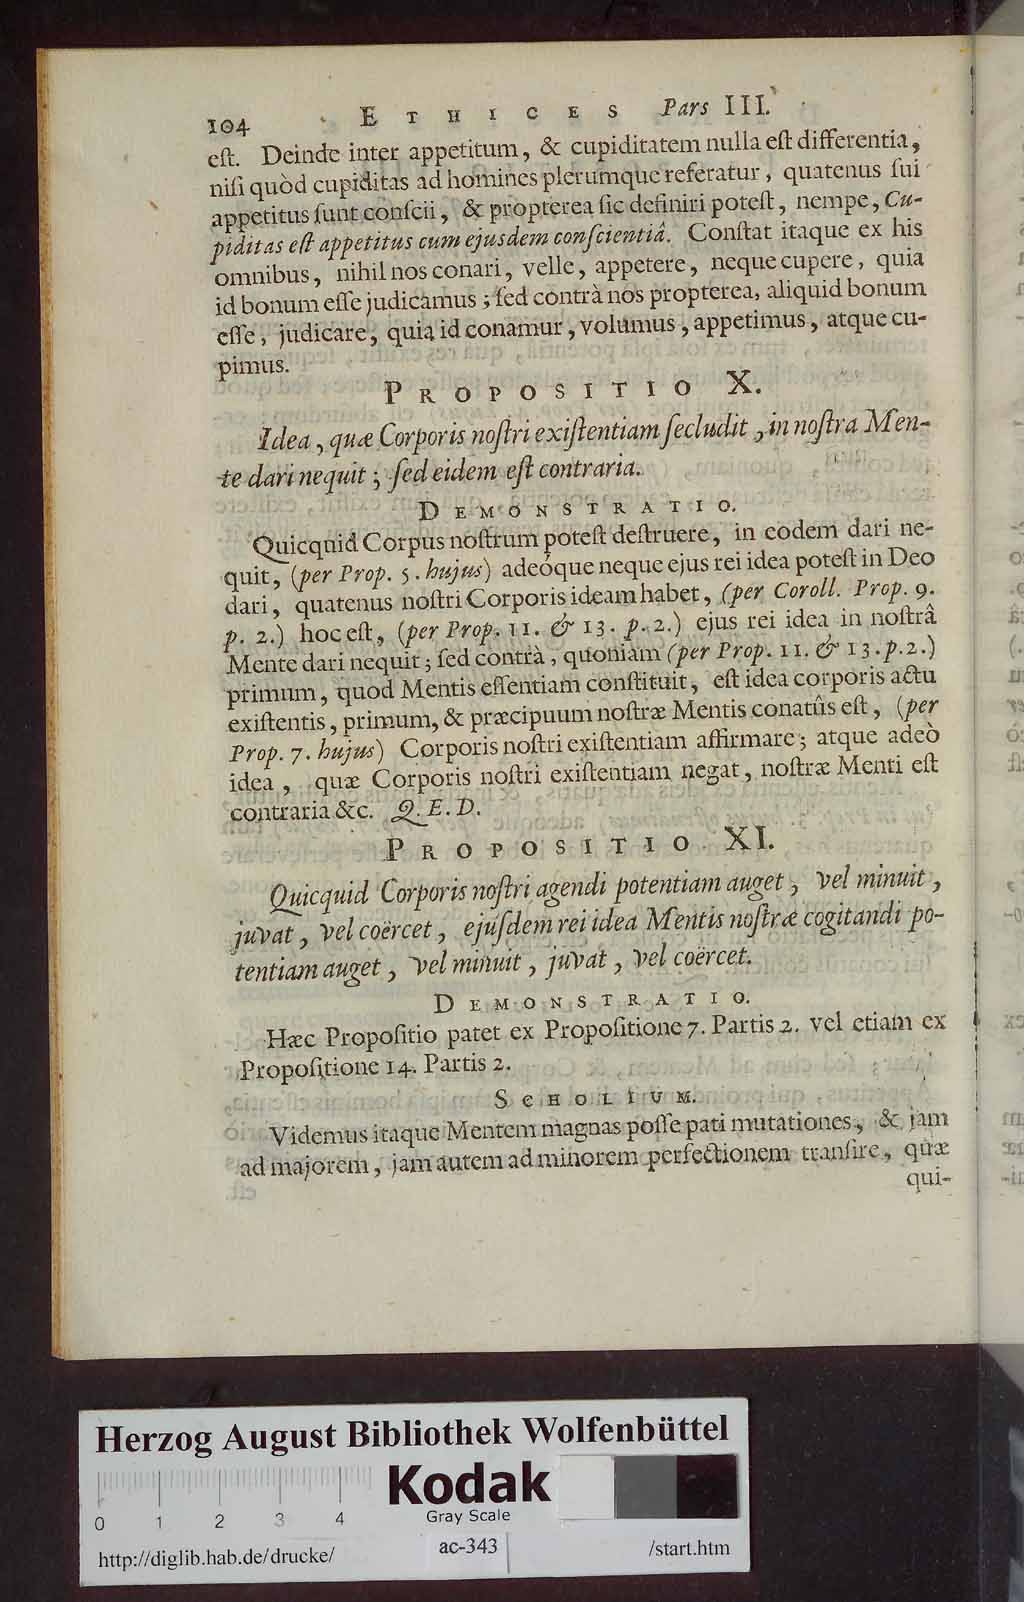 104 ETHICES Pars III.
eſt. Deinde inter appetitum, & cupiditatem nulla eſt differentia,
niſi quòd cupiditas ad homines plerumque referatur, quatenus ſui
appetitus ſunt conſcii, & propterea ſic definiri poteſt, nempe, Cu-
piditas eſt appetitus cum ejusdem conſcientiâ. Conſtat itaque ex his
omnibus, nihil nos conari, velle, appetere, neque cupere, quia
id bonum eſſe judicamus; ſed contrà nos propterea, aliquid bonum
eſſe, judicare, quia id conamur, volumus, appetimus, atque cu-
pimus.
PROPOSITIO X.
Idea, quæ Corporis noſtri exiſtentiam ſecludit, in noſtra Men-
te dari nequit; ſed eidem eſt contraria.
DEMONSTRATIO.
Quicquid Corpus noſtrum poteſt deſtruere, in eodem dari ne-
quit, (per Prop. 5. hujus) adeóque neque ejus rei idea poteſt in Deo
dari, quatenus noſtri Corporis ideam habet, (per Coroll. Prop. 9.
p. 2.) hoc eſt, (per Prop. 11. & 13. p. 2.) ejus rei idea in noſtrâ
Mente dari nequit; ſed contrà, quoniam (per Prop. 11. & 13. p. 2.)
primum, quod Mentis eſſentiam conſtituit, eſt idea corporis actu
exiſtentis, primum, & præcipuum noſtræ Mentis conatûs eſt, (per
Prop. 7. hujus) Corporis noſtri exiſtentiam affirmare; atque adeò
idea, quæ Corporis noſtri exiſtentiam negat, noſtræ Menti eſt
contraria &c. Q. E. D.
PROPOSITIO XI.
Quicquid Corporis noſtri agendi potentiam auget, vel minuit,
juvat, vel coërcet, ejuſdem rei idea Mentis noſtræ cogitandi po-
tentiam auget, vel minuit, juvat, vel coërcet.
DEMONSTRATIO.
Hæc Propoſitio patet ex Propoſitione 7. Partis 2. vel etiam ex
Propoſitione 14. Partis 2.
SCHOLIUM.
Videmus itaque Mentem magnas poſſe pati mutationes, & jam
ad majorem, jam autem ad minorem perfectionem tranſire, quæ
qui-
Herzog August Bibliothek Wolfenbüttel
Kodak
0 1 2 3 4 Gray Scale
http://diglib.hab.de/drucke/ ac-343 /start.htm